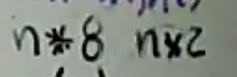 n*8 n*2